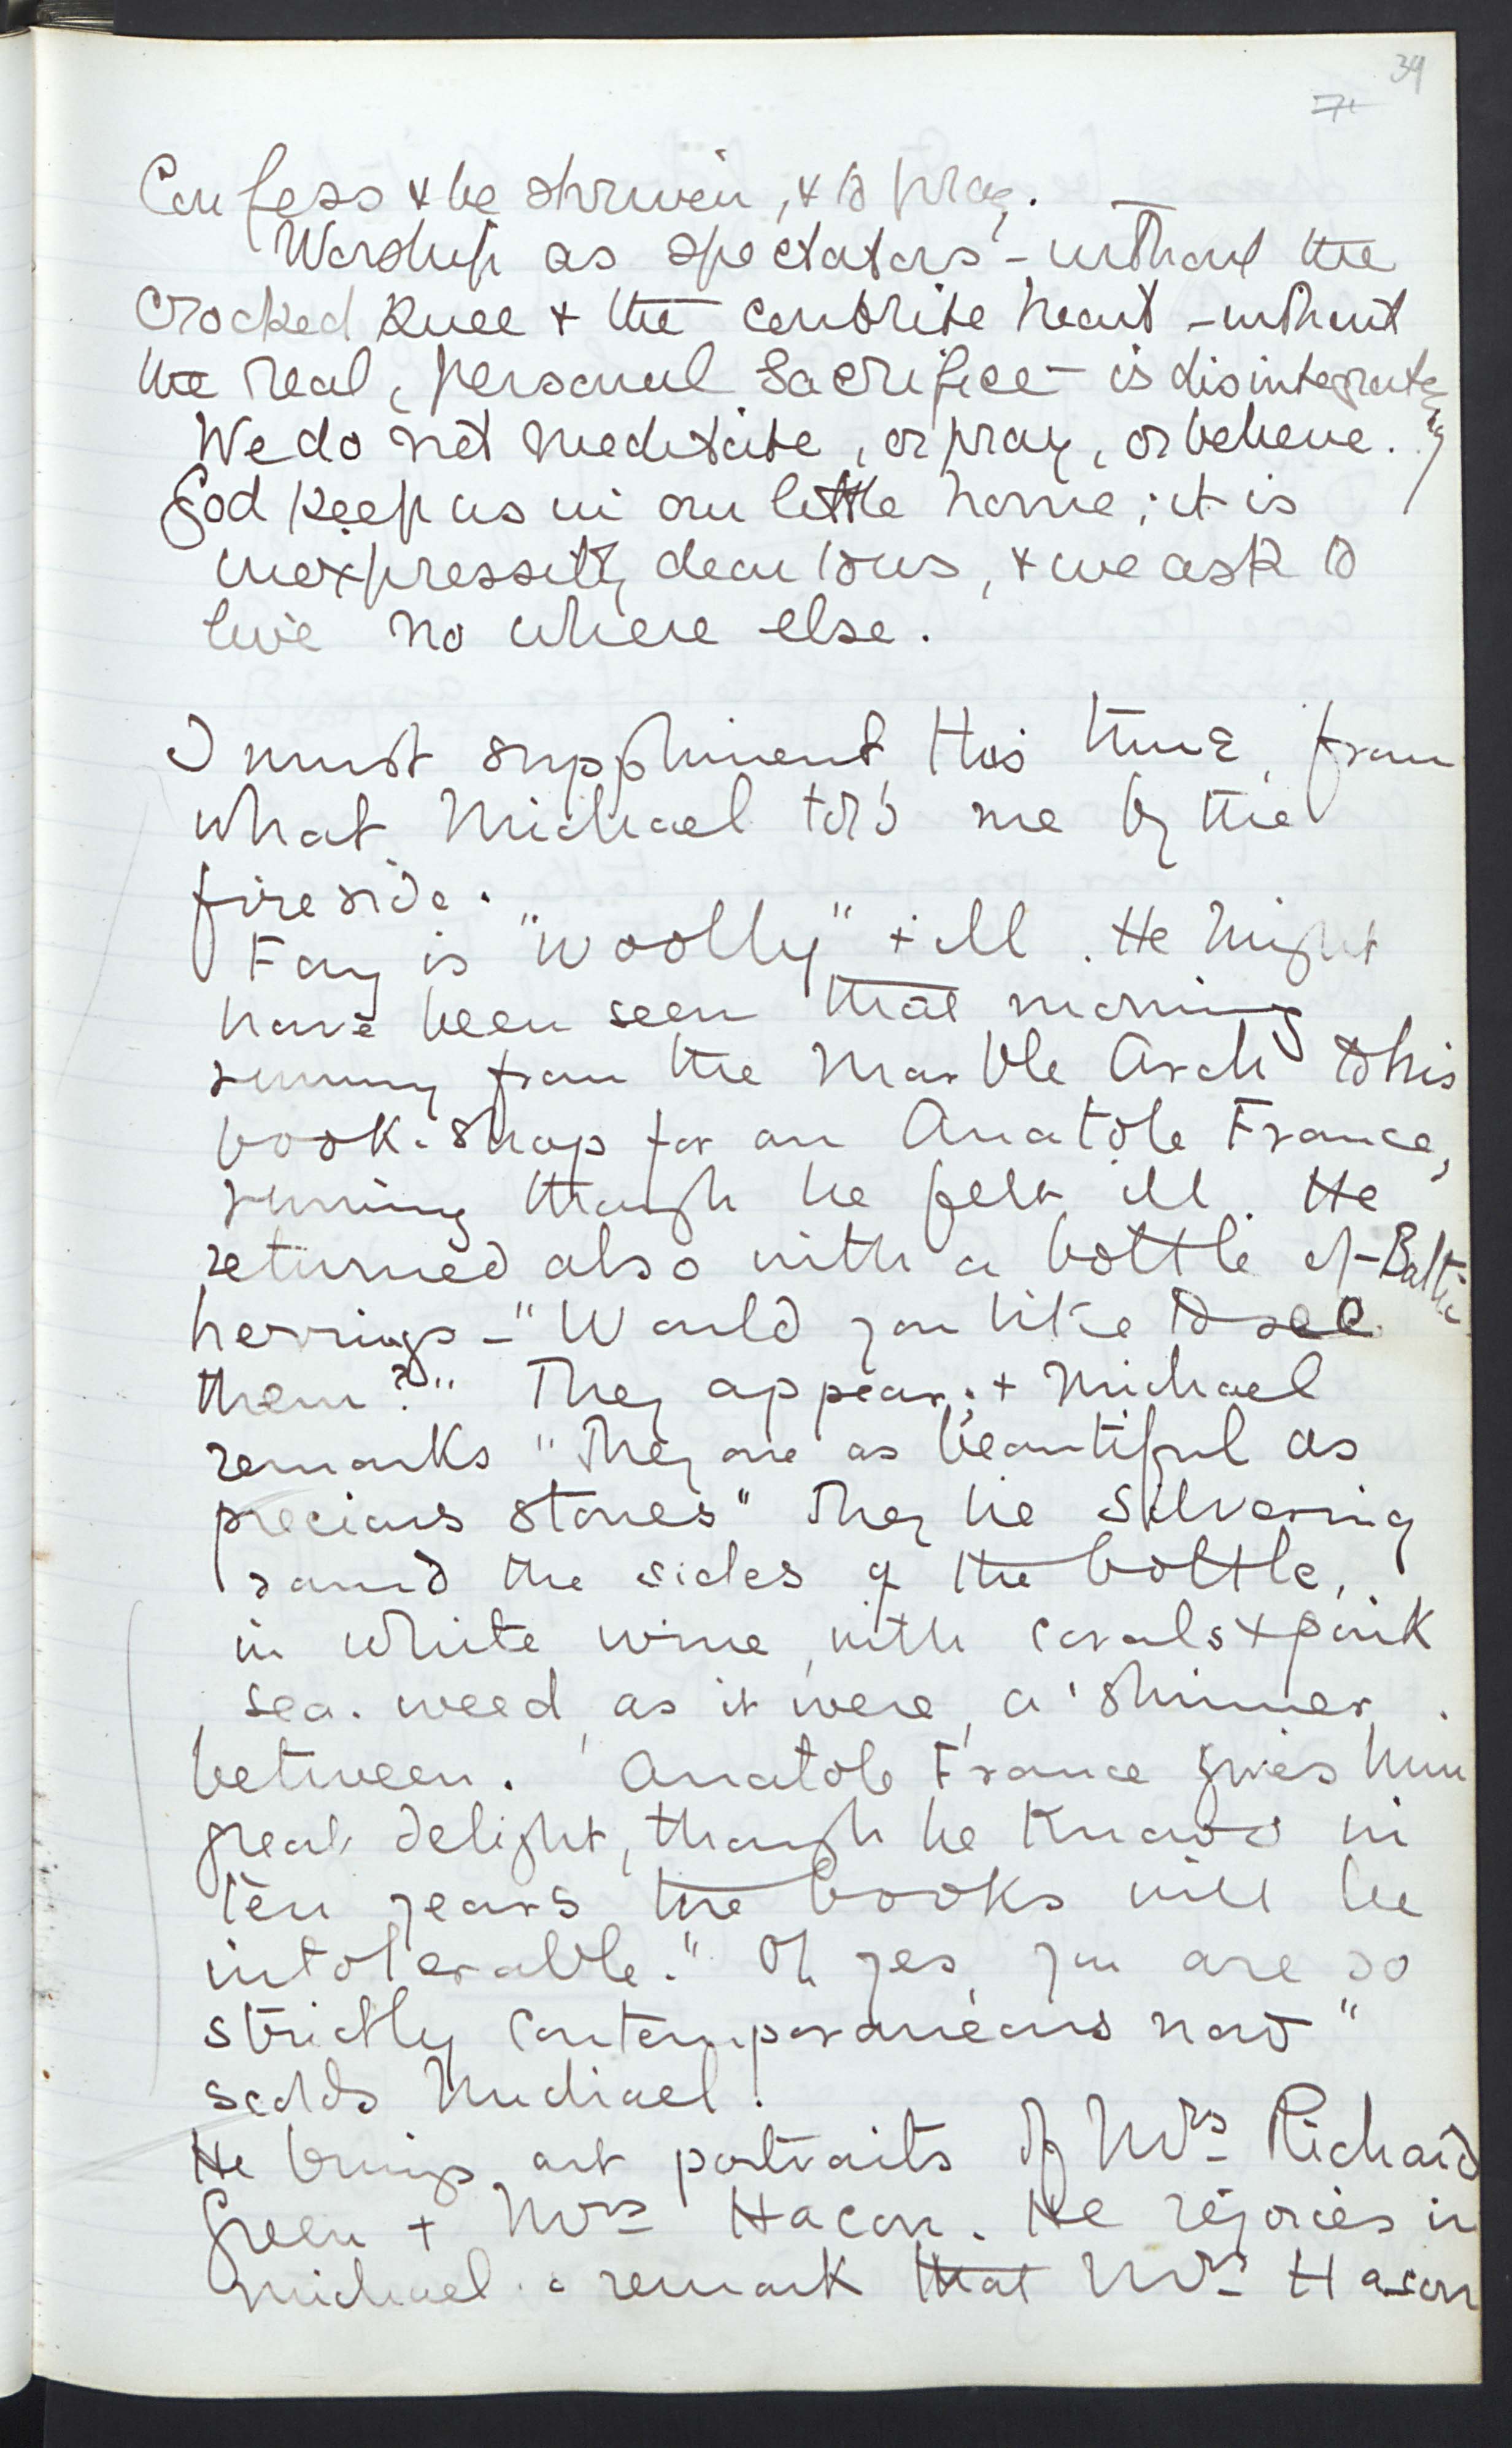 39
71
Confess & be shriven, & to pray. —
Worship as spectators - without the
crooked knee & the contrite heart - without
the real, personal sacrifice - is disintegrating
We do not meditate, or pray, or believe.
God keep us in our little home; it is
inexpressibly dear to us, & we ask to
live no where else.
I must suppliment this time, from
what Michael told me by the
fireside.
Fay is "woolly" + ill. He might
have been seen that morning
running from the Marble Arch to his
book-shop for an Anatole France,
running though he felt ill. He
returned also with a bottle of - Baltic
herrings - "Would you like to see
them?" They appear; + Michael
remarks "They are as beautiful as
precious stones" They lie silvering
round the sides of the bottle,
in white wine, with corals & pink
sea-weed, as it were, a shimmer
between. Anatole France gives him
great delight, though he knows in
ten years the books will be
intolerable." Oh yes, you are so
strictly contemporaneous now"
scolds Michael!
He brings out portraits of Mrs Richard
Green + Mrs Hacon. He rejoices in
Michael's remark that Mrs Hacon